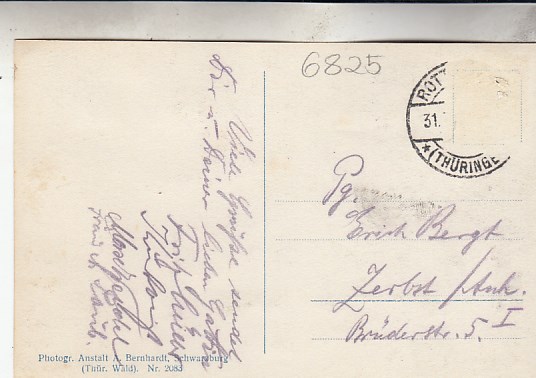 6825
ROTT
31.
*(THÜRINGE
Pg.
Erich Bergt
Zerbst /Anh.
Brüderstr. 5. I
Viele Grüße sendet
Dir u. Deiner lieben Gattin
Fritz
Photogr. Anstalt A. Bernhardt, Schwarzburg
(Thür. Wald). Nr. 2083